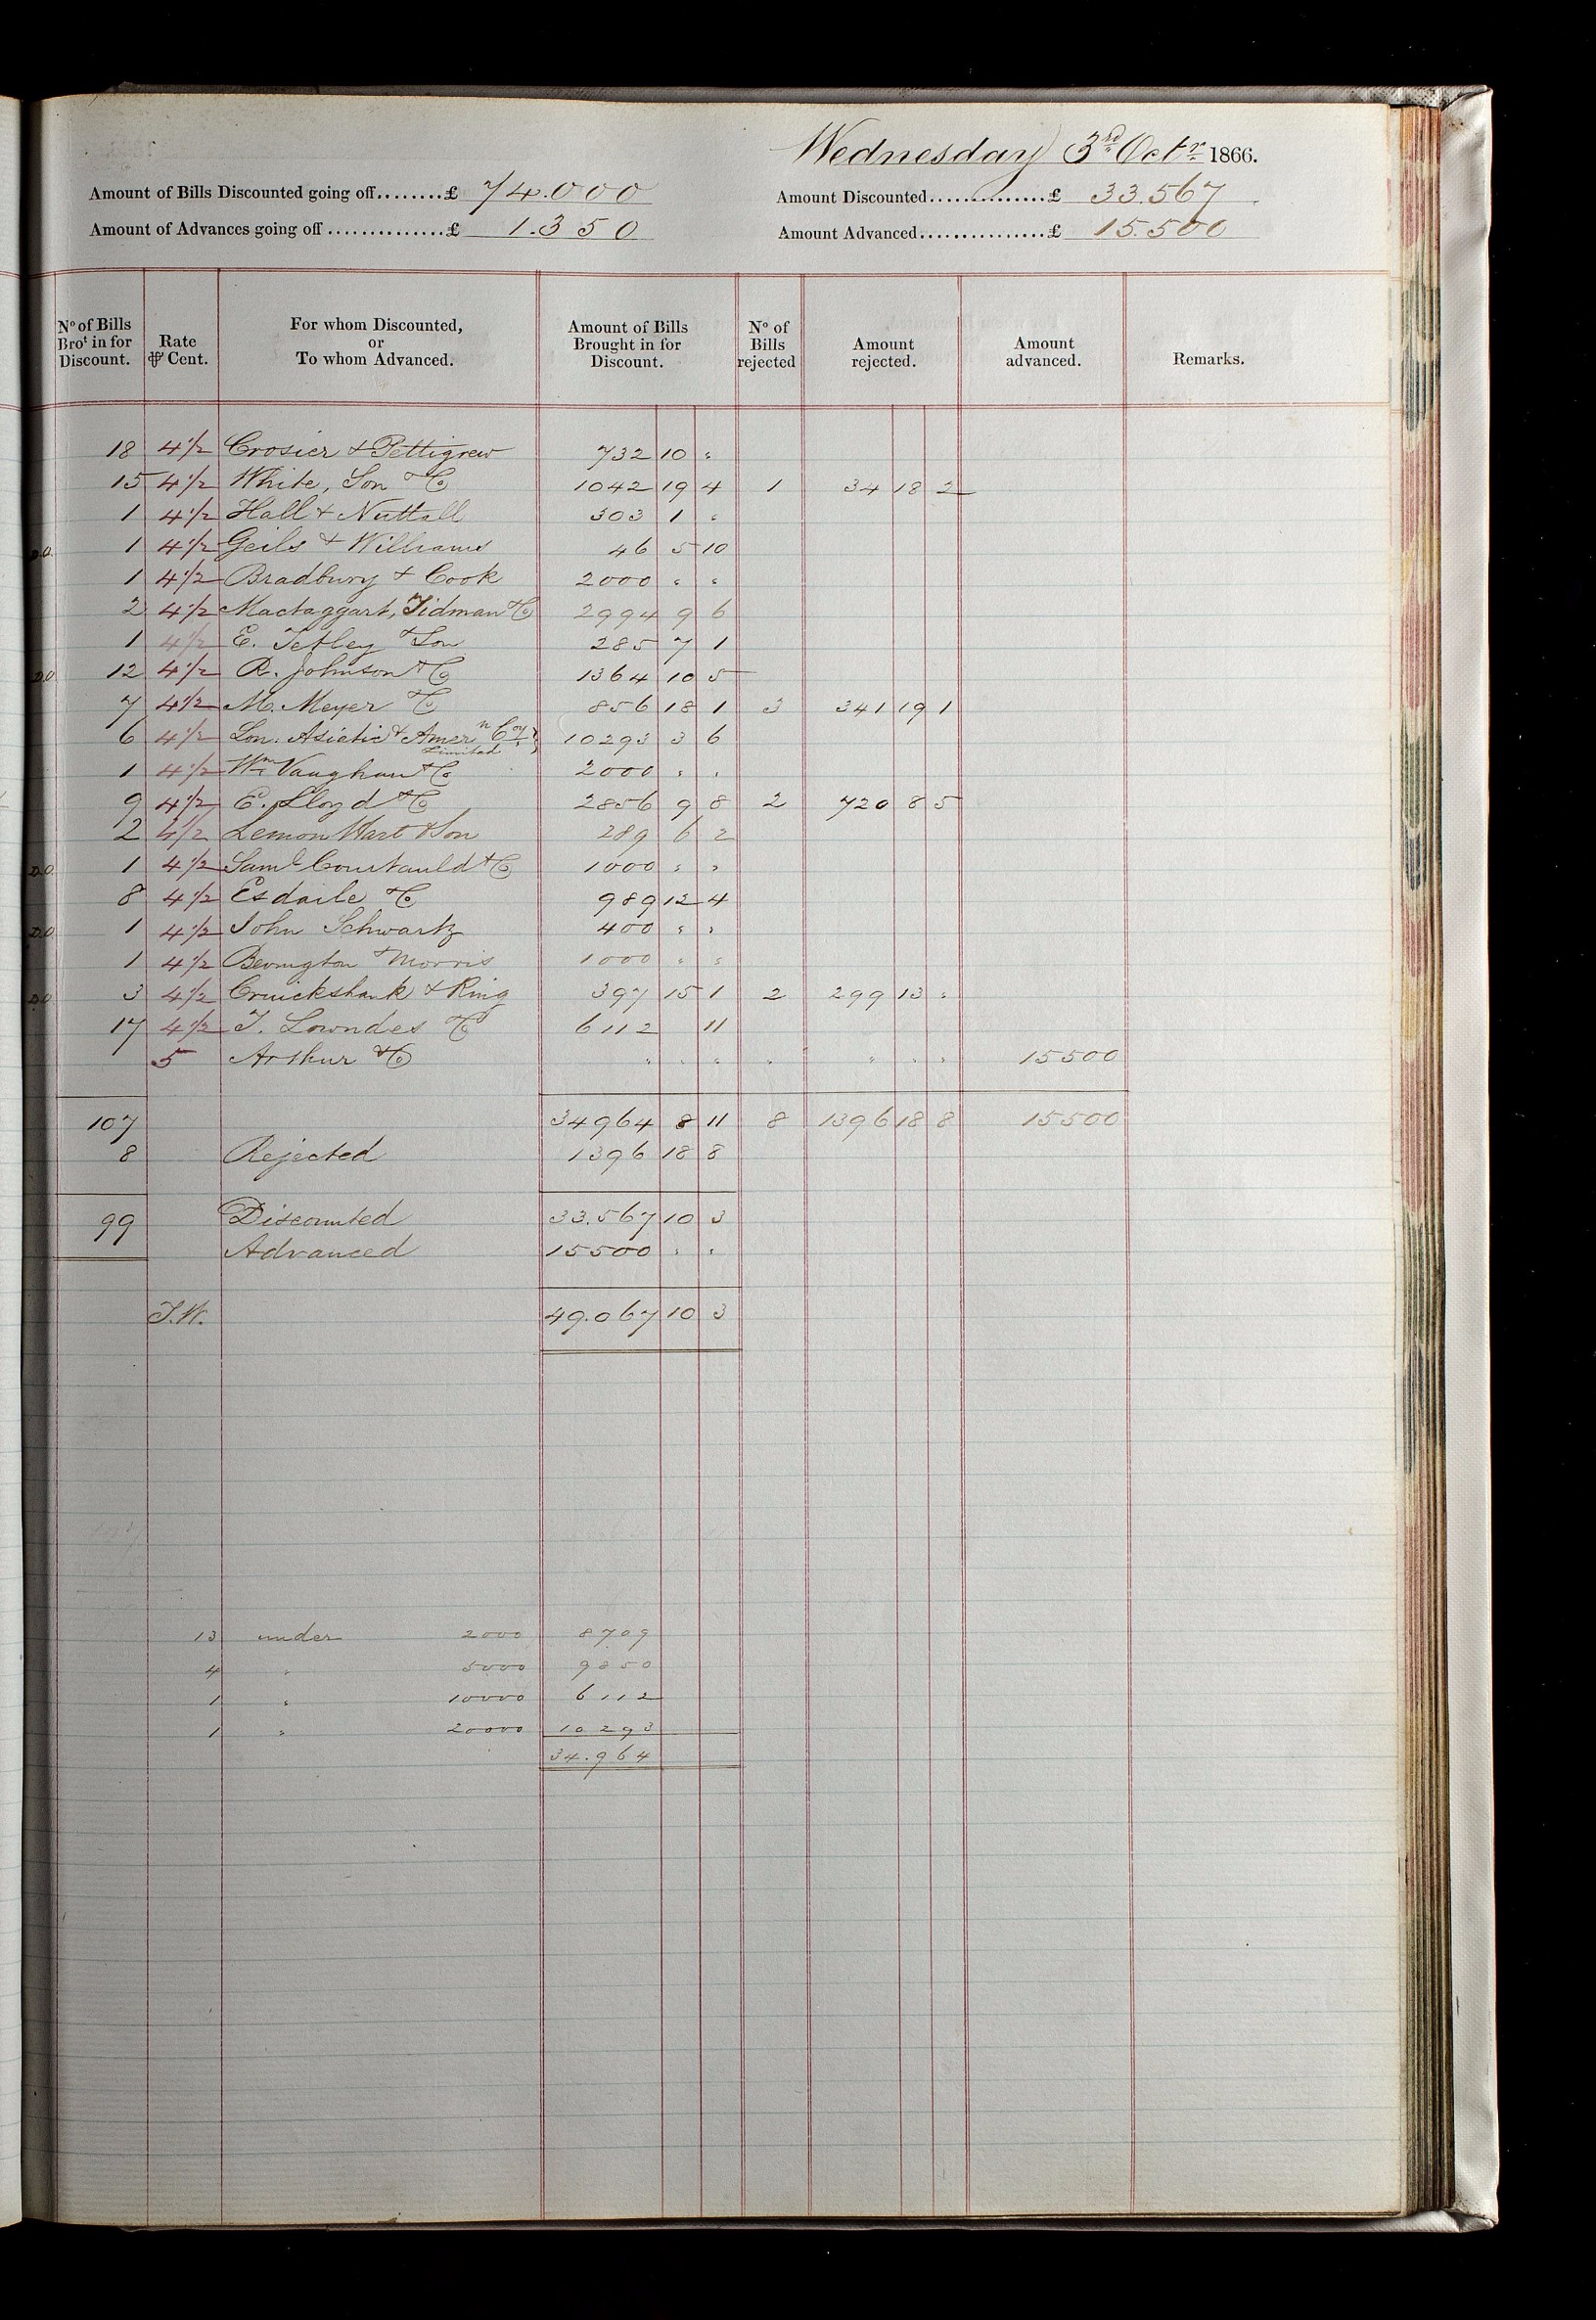 Wednesday 3rd Octr 1866.
Amount of Bills Discounted going off........£ 74.000
Amount Discounted..............£ 33.567
Amount of Advances going off..............£ 1.350
Amount Advanced................£ 15.500
No of Bills Brot in for Discount. Rate ⅌ Cent. For whom Discounted, or To whom Advanced. Amount of Bills Brought in for Discount. No of Bills rejected Amount rejected. Amount advanced. Remarks.
18 4½ Crosier & Pettigrew 732 10 "
15 4½ White, Son & Co 1042 19 4 1 34 18 2
1 4½ Hall & Nuttall 303 1 "
D.O. 1 4½ Geils & Williams 46 5 10
1 4½ Bradbury & Cook 2000 " "
2 4½ Mactaggart, Tidman & Co 2994 9 6
1 4½ E. Tetley & Son 285 7 1
D.O. 12 4½ R. Johnson & Co 1364 10 5
7 4½ M. Meyer & Co 856 18 1 3 341 19 1
6 4½ Lon. Asiatic & Amern Coy Limited 10293 3 6
1 4½ Wm Vaughan & Co 2000 " "
9 4½ E. Lloyd & Co 2856 9 8 2 720 8 5
2 4½ Lemon Hart & Son 289 6 2
D.O. 1 4½ Saml Courtauld & Co 1000 " "
8 4½ Esdaile & Co 989 12 4
D.O. 1 4½ John Schwartz 400 " "
1 4½ Bevington & Morris 1000 " "
D.O. 3 4½ Cruickshank & Ring 397 15 1 2 299 13 "
17 4½ T. Lowndes & Co 6112 11
5 Arthur & Co " " " " " " " 15500
107 34964 8 11 8 1396 18 8 15500
8 Rejected 1396 18 8
99 Discounted 33.567 10 3
Advanced 15500 " "
T.W. 49.067 10 3
13 under 2000 8709
4 " 5000 9850
1 " 10000 6112
1 " 20000 10293
34.964